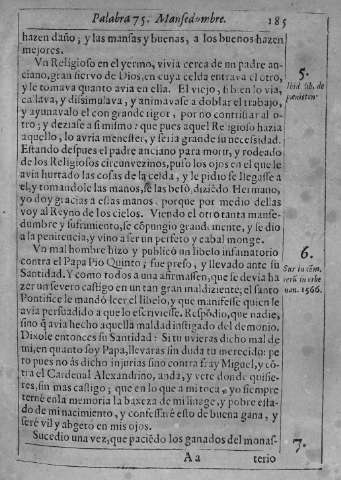 Palabra 75. Mansedumbre. 185
hazen daño; y las mansas y buenas, a los buenos hazen
mejores.
Vn Religioso en el yermo, vivia cerca de vn padre an-
ciano, gran siervo de Dios, en cuya celda entrava el otro,
y le tomava quanto avia en ella. El viejo, si bien lo via,
callava, y dissimulava, y animavase a doblar el trabajo,
y ayunavalo el con grande rigor, por no contristar al o-
tro; y deziase a si mismo: que pues aquel Religioso hazia
aquello, lo avria menester, y seria grande su necessidad.
Estando despues el padre anciano para morir, y rodeado
de los Religiosos circunvezinos, puso los ojos en el que le
avia hurtado las cosas de la celda, y le pidio se llegasse a
el, y tomandole las manos, se las besò, diziẽdo Hermano,
yo doy gracias a estas manos, porque por medio dellas
voy al Reyno de los cielos. Viendo el otro tanta manse-
dumbre y sufrimiento, se cõpungio grandemente, y se dio
a la penitencia, y vino a ser vn perfeto y cabal monge.
Vn mal hombre hizo y publicò vn libelo infamatorio
contra el Papa Pio Quinto; fue preso, y llevado ante su
Santidad. Y como todos a vna afirmassen, que se devia ha
zer vn severo castigo en vn tan gran maldiziente; el santo
Pontifice le mandò leer el libelo, y que manifeste quien le
avia persuadido a que lo escriviesse. Respõdio, que nadie,
sino q̃ avia hecho aquella maldad instigado del demonio.
Dixole entonces su Santidad: Si tu vvieras dicho mal de
mi, en quanto soy Papa, llevaras sin duda tu merecido: pe
ro pues no ás dicho injurias sino contra fray Miguel, y cõ-
tra el Cardenal Alexandrino, anda, y vete donde quisie-
res, sin mas castigo; que en lo que a mi toca, yo siempre
ternè en la memoria la baxeza de mi linage, y pobre esta-
do de mi nacimiento, y confessarè esto de buena gana, y
serè vil y abgeto en mis ojos.
Sucedio una vez, que paciẽdo los ganados del monas-
A a terio
5.
Ibid. lib. de
6.
Sur. in cõm.
nan. 1566.
7.